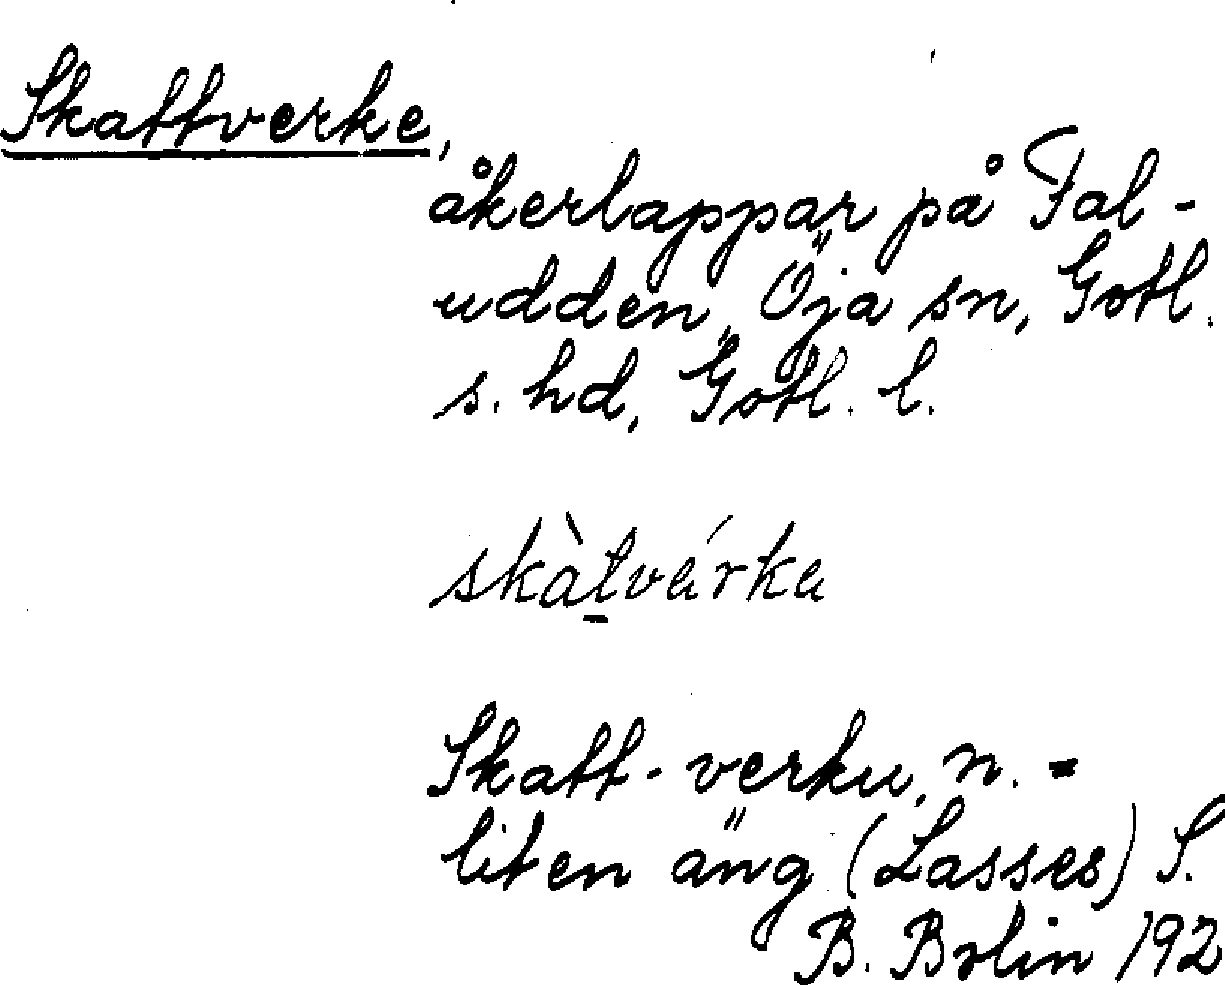 Skattverke,
åkerlappar på Fal-
udden, Öja sn, Gotl.
s. hd, Gotl. l.
skàt̲várka
Skatt-verku, n. =
liten äng (Lasses) S.
B. Bolin 192